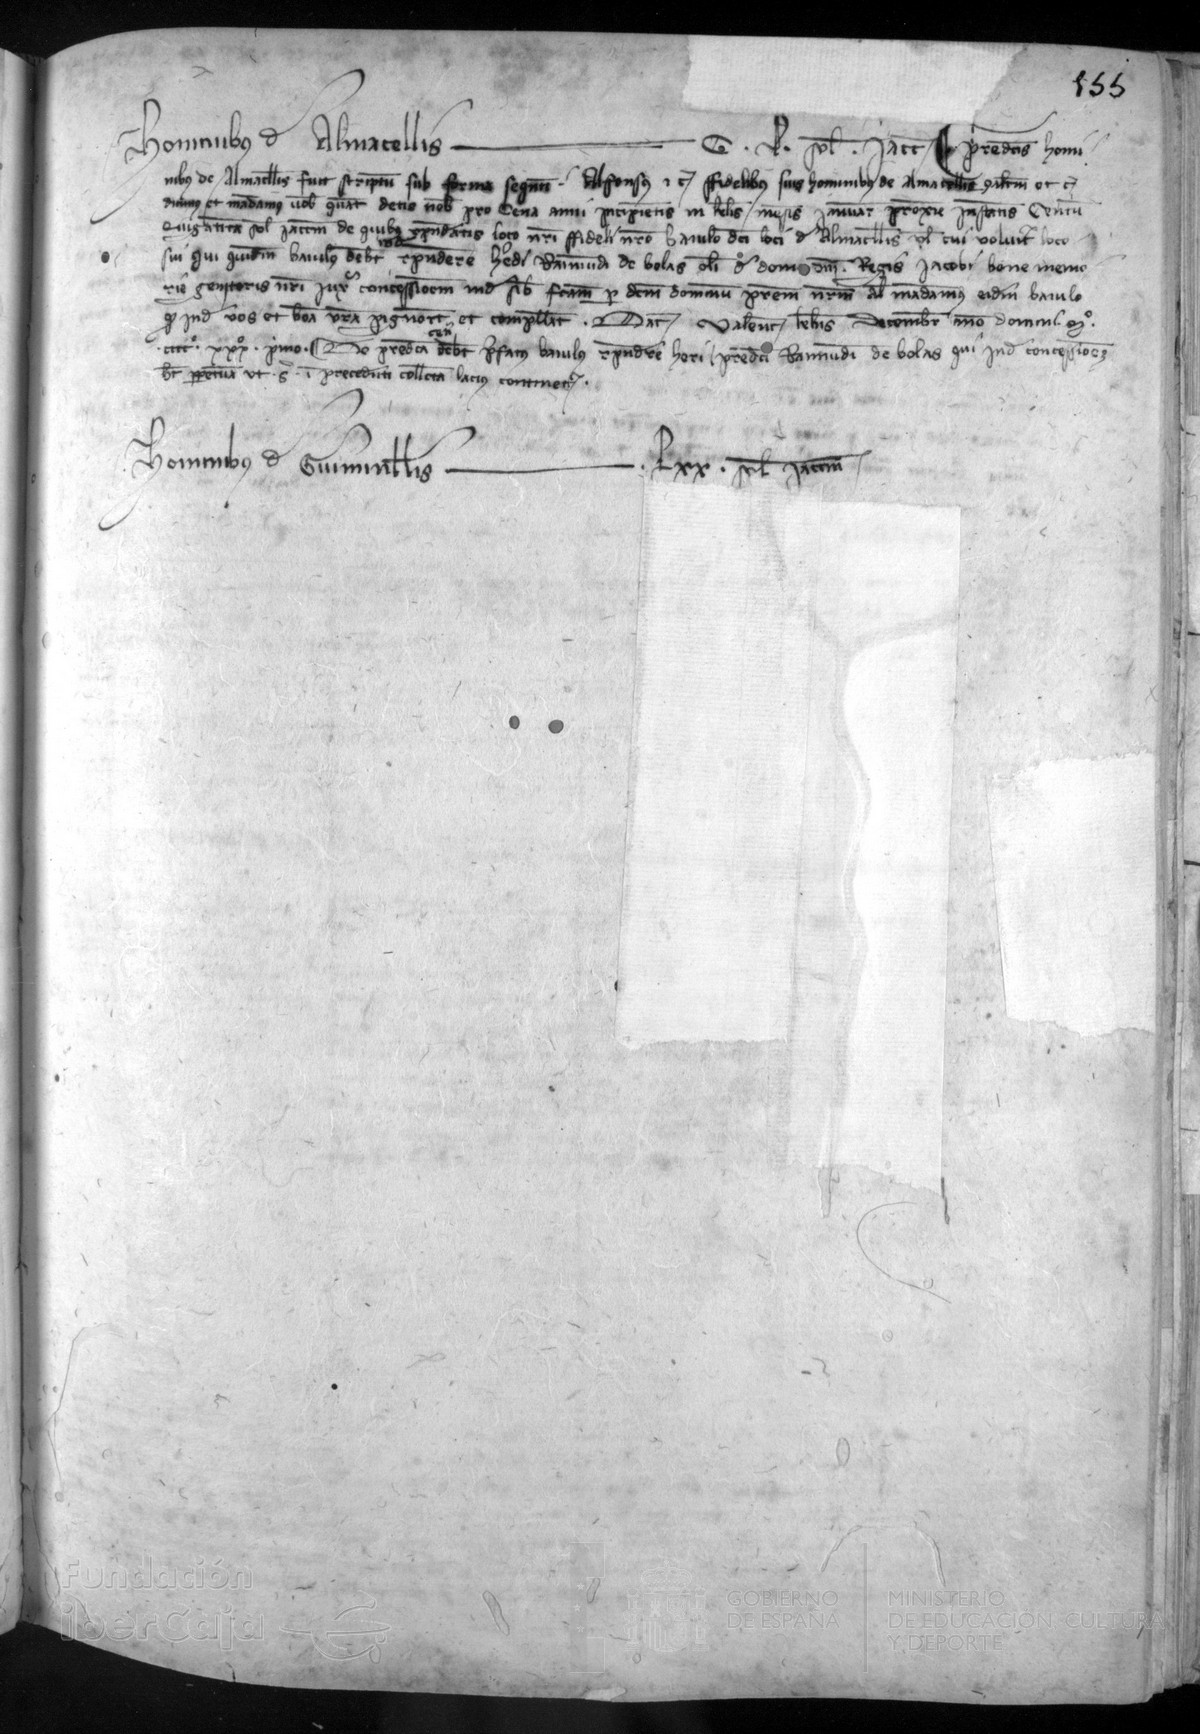 155
Hominibus d Almacellis ——— C . L . sol . Jacc ¶ predcis homi
nibus de Almacellis fuit scriptum sub forma sequenti Alfonsus &c ffidelibus suis hominibus de Almacellis salutem et
dicimus et mandamus vob quat detis nob pro Cena anni incipientis in kls mensis Januar proxime instantis Centum
Quinquaginta sol jaccen de quibus respondeatis loco nri ffideli nro baiulo dci loci d Almacellis vl cui voluit loco
sui qui quidem baiulus debet respondere Raimunda de bolas olim domini Regis Jacobi bone memo
rie genitoris nri juxta concessionem ind sib fcam p dcm dominum prem nrm mandamus eidem baiulo
q ind vos et bona vra pignoret et compellat . Dat Valenc kls Decembr anno domini Mº.
.cccº. xxº. primo . ¶ De predca cena debet prefatus baiulus respondere predci Raimundi de bolas qui ind concessionem
perpetuam ut . s . i precedenti collecta lacius continetur .
Hominibus d Guiminellis ——— . Lxx . sol jaccen
Fundación
iberCaja
GOBIERNO
DE ESPAÑA
MINISTERIO
DE EDUCACIÓN, CULTURA
Y DEPORTE